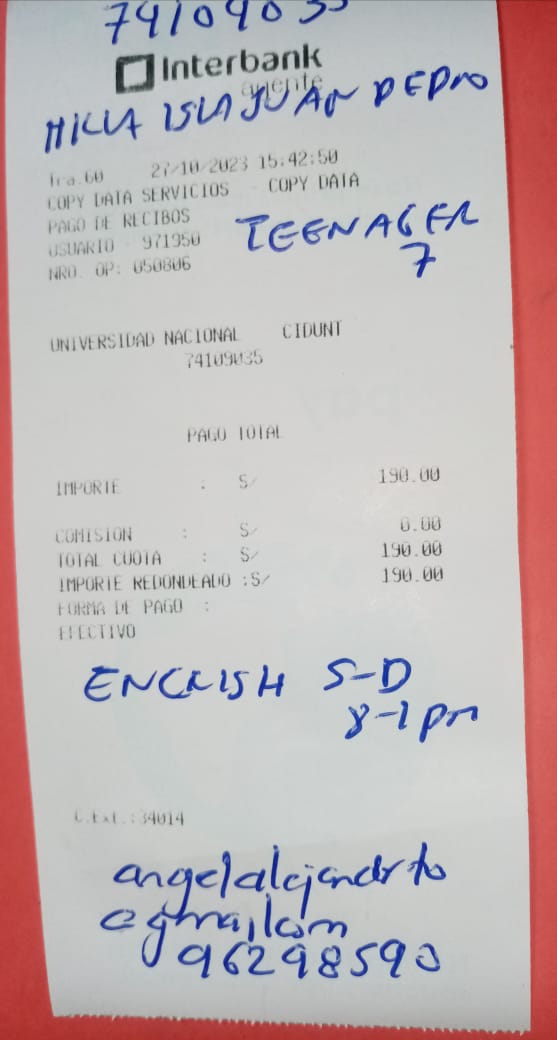 74109035
Interbank
agente
MILLA ISLA JUAN PEDRO
Tra.60 27/10/2023 15:42:50
COPY DATA SERVICIOS - COPY DATA
PAGO DE RECIBOS
USUARIO 971950
NRO. OP: 050806
TEENAGER
7
UNIVERSIDAD NACIONAL CIDUNT
74109035
PAGO TOTAL
IMPORTE : S/ 190.00
COMISION : S/ 0.00
TOTAL CUOTA : S/ 190.00
IMPORTE REDONDEADO :S/ 190.00
FORMA DE PAGO :
EFECTIVO
ENGLISH S-D
8-1 pm
C.Ext.:34014
angelalejandrto
@gmail.com
96298590